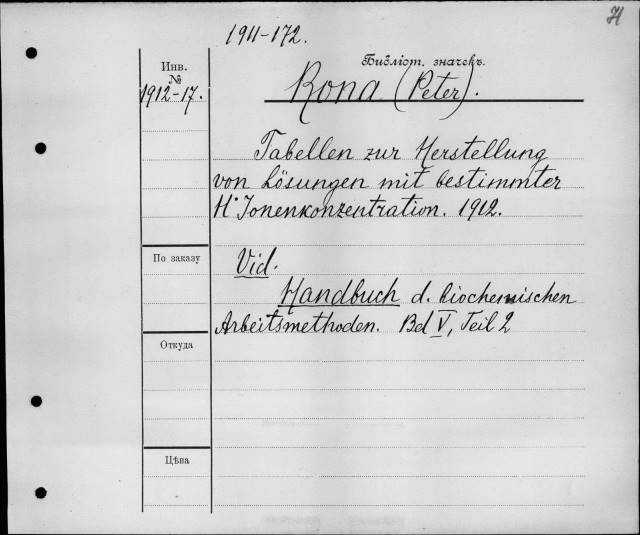 H
1911-172.
Библіот. значекъ.
Инв.
№
1912-17.
Rona (Peter).
Tabellen zur Herstellung
von Lösungen mit bestimmter
H˙Jonenkonzentration. 1912.
По заказу
Vid.
Handbuch d. biochemischen
Arbeitsmethoden. Bd V, Teil 2
Откуда
Цѣна